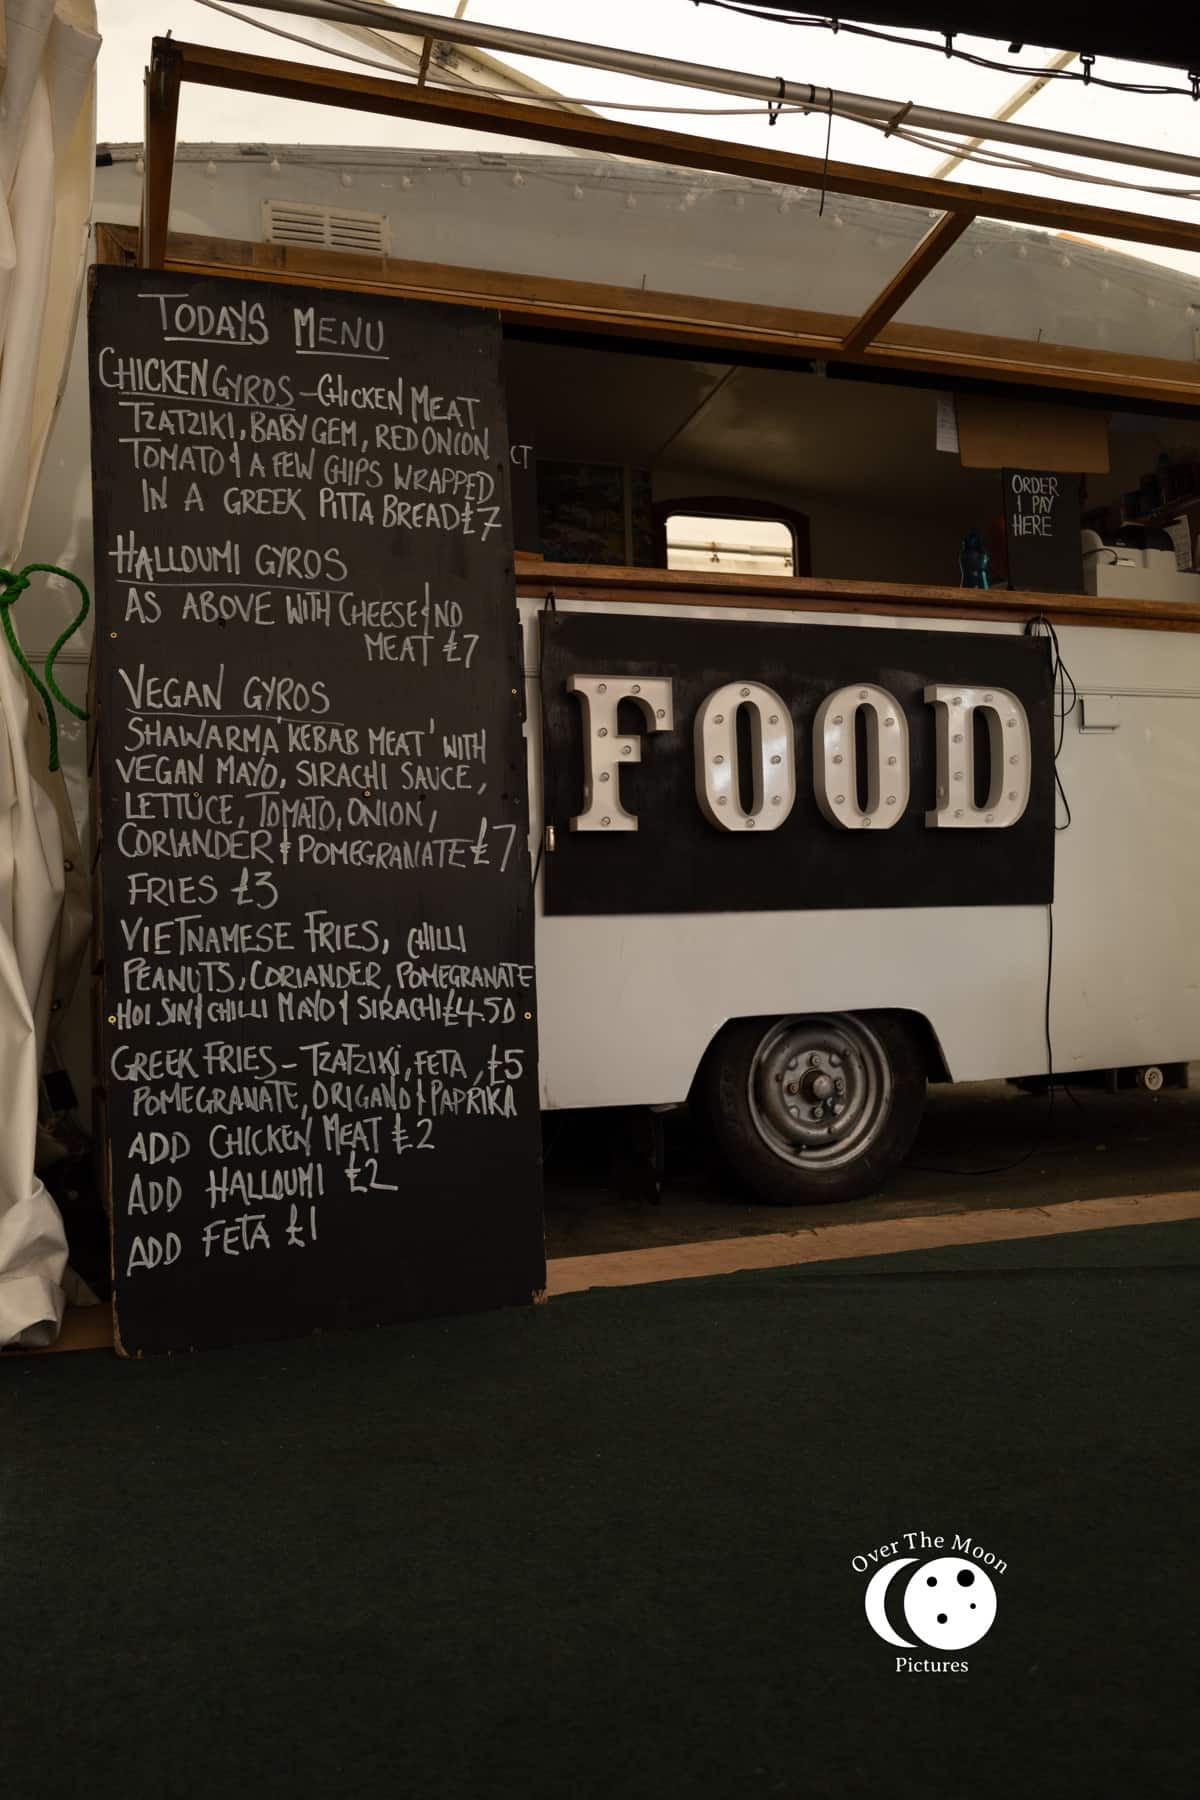 TODAYS MENU
CHICKEN GYROS - CHICKEN MEAT
TZATZIKI, BABY GEM, RED ONION
TOMATO & A FEW CHIPS WRAPPED
IN A GREEK PITTA BREAD £7
HALLOUMI GYROS
AS ABOVE WITH CHEESE & NO
MEAT £7
VEGAN GYROS
SHAWARMA 'KEBAB MEAT' WITH
VEGAN MAYO, SIRACHI SAUCE,
LETTUCE, TOMATO, ONION,
CORIANDER & POMEGRANATE £7
FRIES £3
VIETNAMESE FRIES, CHILLI
PEANUTS, CORIANDER, POMEGRANATE
HOI SIN & CHILLI MAYO & SIRACHI £4.50
GREEK FRIES - TZATZIKI, FETA, £5
POMEGRANATE, ORIGANO & PAPRIKA
ADD CHICKEN MEAT £2
ADD HALLOUMI £2
ADD FETA £1
CT
ORDER
& PAY
HERE
FOOD
Over The Moon
Pictures